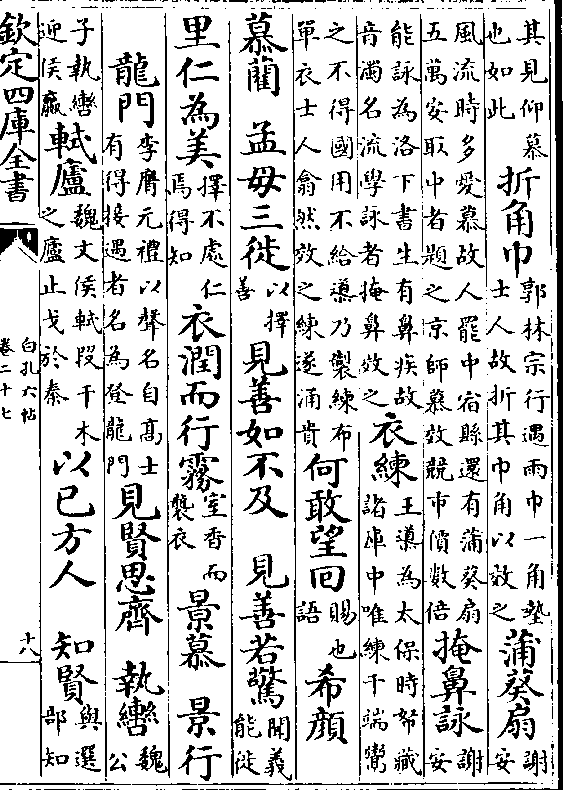 其見仰慕也如此 折角巾 郭林宗行遇雨巾一角墊士人故折其巾角以效之 蒲葵扇 謝安
風流時多愛慕故人罷中宿縣還有蒲葵扇五萬安取中者題之京師慕效競市價數倍 掩鼻詠 謝安
能詠為洛下書生有鼻疾故音濁名流學詠者掩鼻效之 衣練 王導為太保時帑藏諸庫中唯練千端鬻
之不得國用不給導乃製練布單衣士人翕然效之練遂涌貴 何敢望回 賜也語 希顏
慕藺 孟母三徙 以擇善 見善如不及 見善若驚 聞義能徙
里仁為美 擇不處仁焉得知 衣潤而行霧 室香而襲衣 景慕 景行
龍門 李膺元禮以聲名自高士有得接遇者名為登龍門 見賢思齊 執轡 魏公
子執轡迎侯嬴 軾廬 魏文侯軾段干木之廬止戈於秦 以已方人 知賢 與選部知
欽定四庫全書
白孔六帖
卷二十七
十八